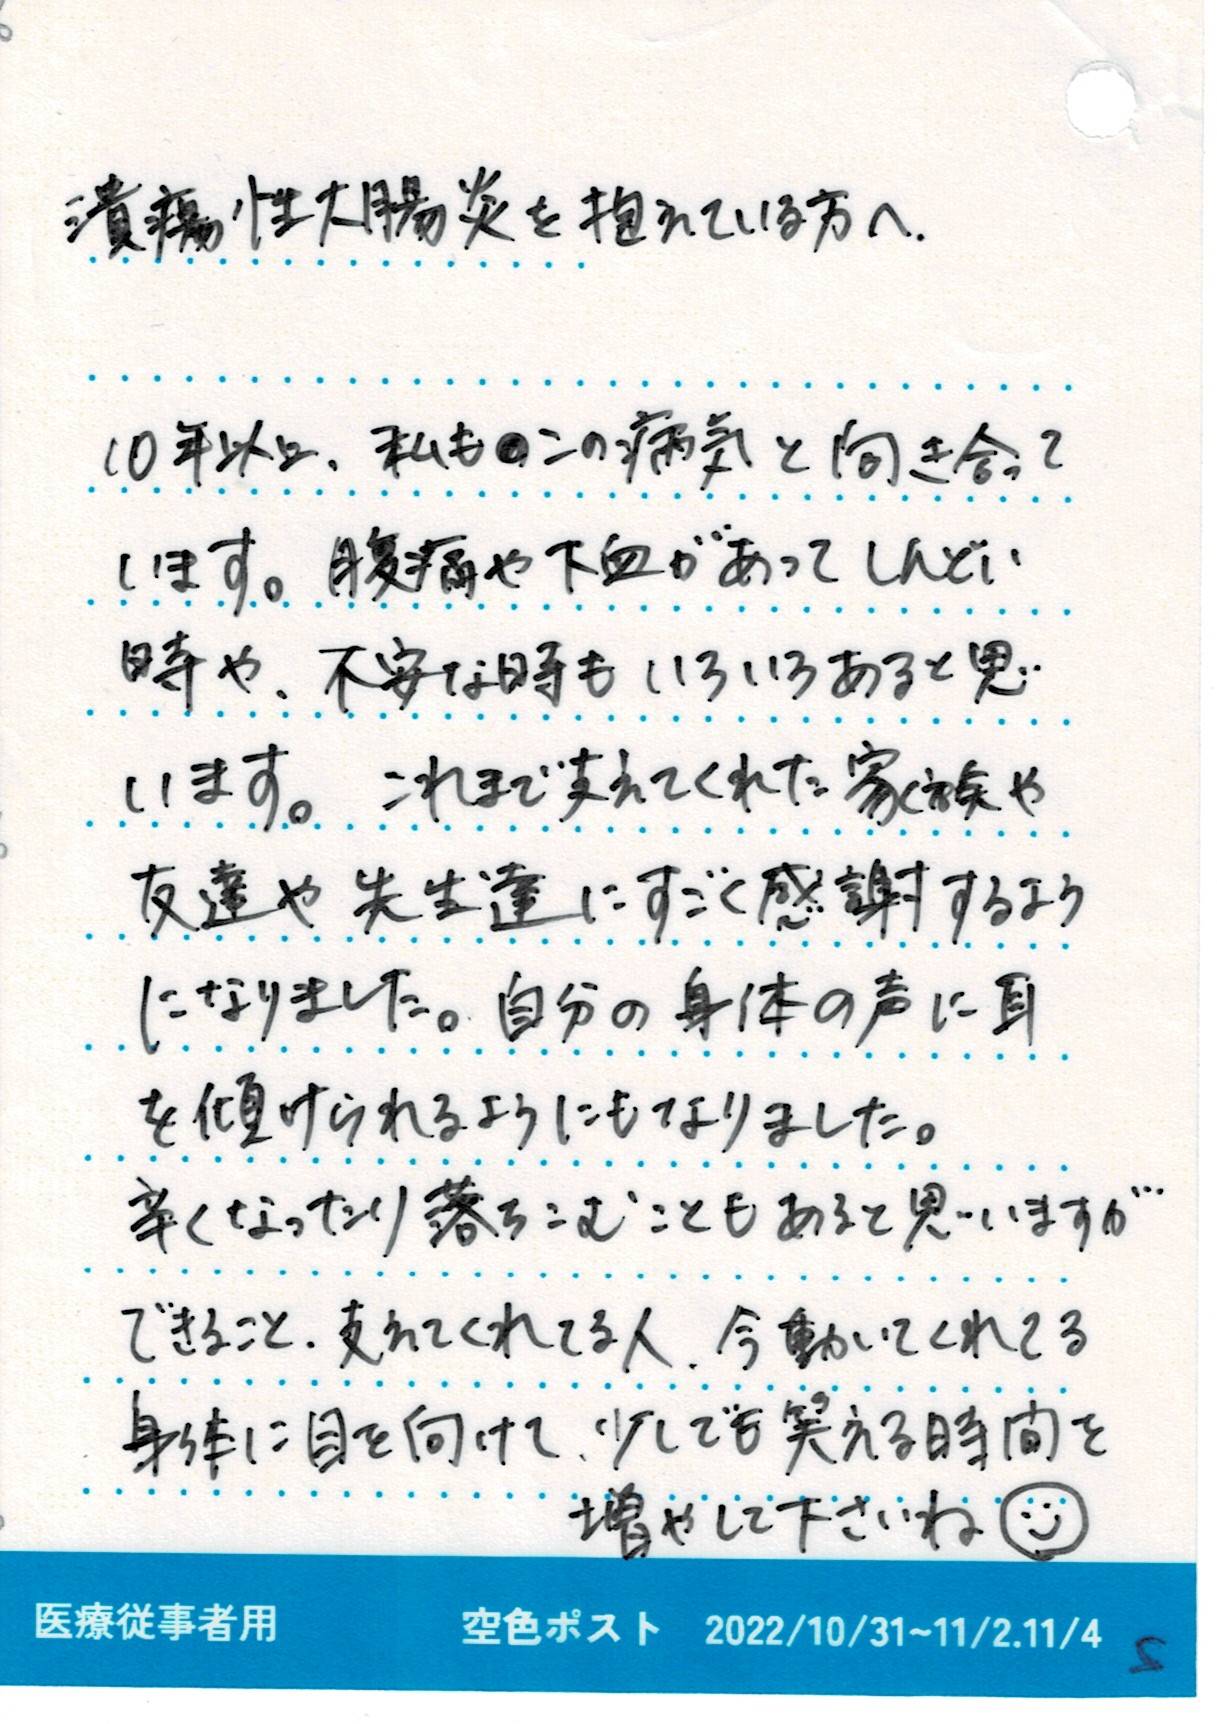 潰瘍性大腸炎を抱えている方へ.
10年以上、私もこの病気と向き合って
います。腹痛や下血があってしんどい
時や、不安な時もいろいろあると思
います。これまで支えてくれた家族や
友達や先生達にすごく感謝するよう
になりました。自分の身体の声に耳
を傾けられるようにもなりました。
辛くなったり落ちこむこともあると思いますが
できること、支えてくれてる人、今動いてくれてる
身体に目を向けて、少しでも笑える時間を
増やして下さいね
医療従事者用 空色ポスト 2022/10/31~11/2.11/4
2